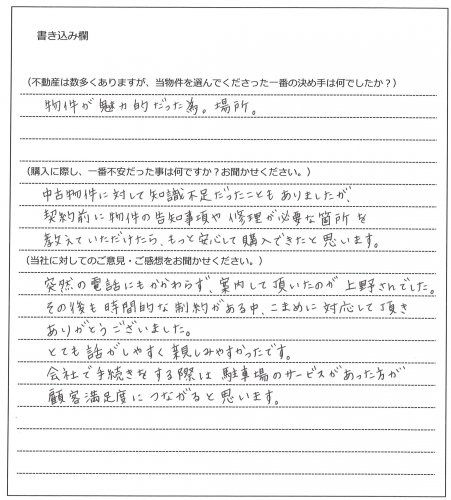 書き込み欄
(不動産は数多くありますが、当物件を選んでくださった一番の決め手は何でしたか?)
物件が魅力的だった為。場所。
(購入に際し、一番不安だった事は何ですか?お聞かせください。)
中古物件に対して知識不足だったこともありましたが、
契約前に物件の告知事項や修理が必要な箇所を
教えていただけたら、もっと安心して購入できたと思います。
(当社に対してのご意見・ご感想をお聞かせください。)
突然の電話にもかかわらず、案内して頂いたのが上野さんでした。
その後も時間的な制約がある中、こまめに対応して頂き
ありがとうございました。
とても話がしやすく親しみやすかったです。
会社で手続きをする際は駐車場のサービスがあった方が
顧客満足度につながると思います。